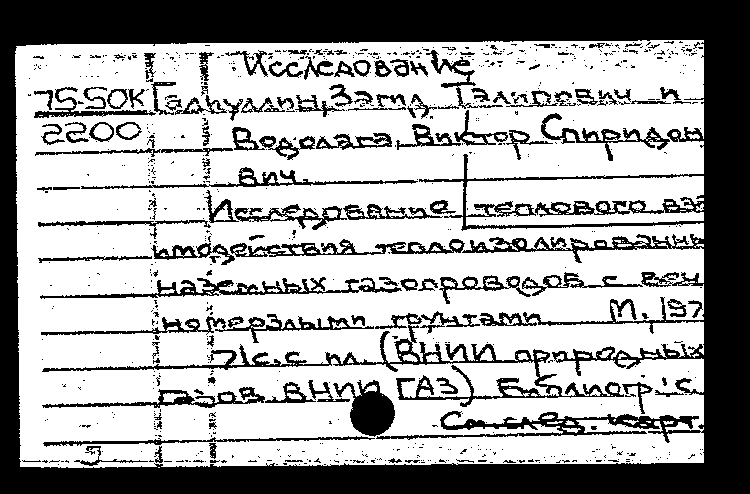 Исследование
75-50К Галиуллин, Загид Талипович и
2200 Водолага, Виктор Спиридон
вич.
Исследование теплового вза
имодействия теплоизолированны
наземных газопроводов с веч
номерзлыми грунтами. М., 197
71с. с ил. (ВНИИ природных
газов. ВНИИГАЗ) Библиогр.: с.
См. след. карт.